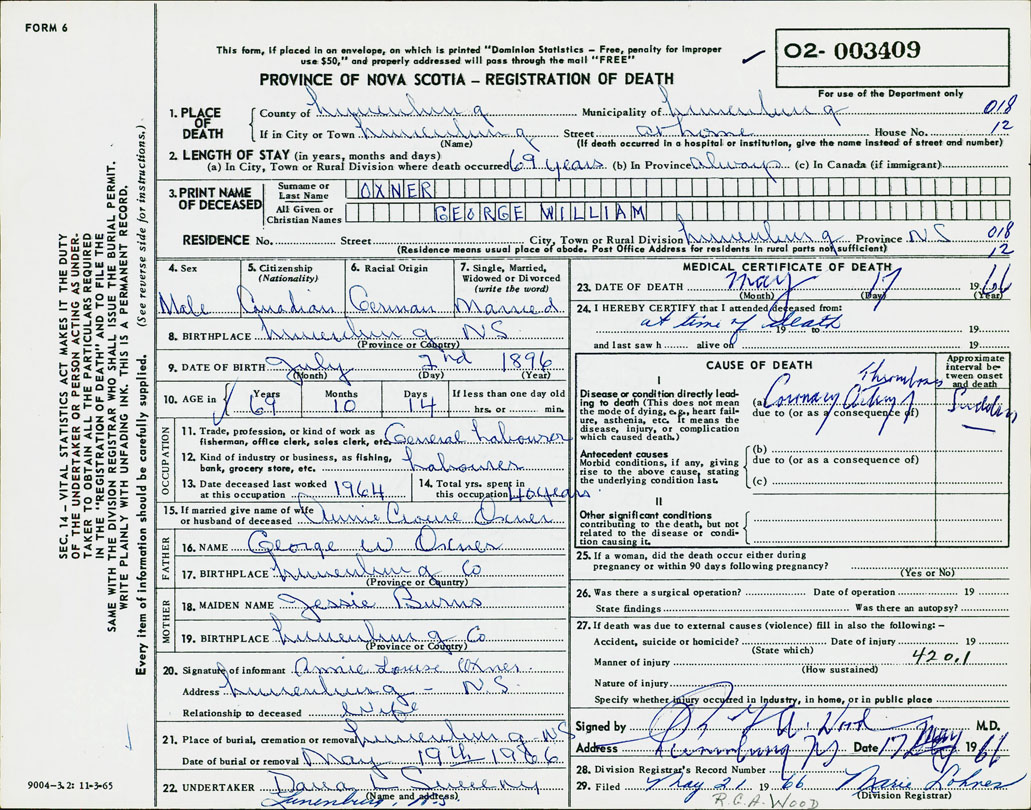 FORM 6
This form, if placed in an envelope, on which is printed "Dominion Statistics – Free, penalty for improper
use $50," and properly addressed will pass through the mail "FREE"
PROVINCE OF NOVA SCOTIA – REGISTRATION OF DEATH
✓ 02- 003409
For use of the Department only
1. PLACE OF DEATH
County of Lunenburg Municipality of Lunenburg 018
If in City or Town Lunenburg Street at home House No. 12
(Name) (If death occurred in a hospital or institution, give the name instead of street and number)
2. LENGTH OF STAY (in years, months and days)
(a) In City, Town or Rural Division where death occurred 69 years (b) In Province always (c) In Canada (if immigrant)
3. PRINT NAME OF DECEASED
Surname or Last Name OXNER
All Given or Christian Names GEORGE WILLIAM
RESIDENCE No. Street City, Town or Rural Division Lunenburg Province N S 018
(Residence means usual place of abode. Post Office Address for residents in rural parts not sufficient) 12
4. Sex Male
5. Citizenship (Nationality) Canadian
6. Racial Origin German
7. Single, Married, Widowed or Divorced (write the word) Married
8. BIRTHPLACE Lunenburg NS
(Province or Country)
9. DATE OF BIRTH July 2nd 1896
(Month) (Day) (Year)
10. AGE in Years 69 Months 10 Days 14 If less than one day old hrs. or min.
OCCUPATION
11. Trade, profession, or kind of work as
fisherman, office clerk, sales clerk, etc. General Labourer
12. Kind of industry or business, as fishing,
bank, grocery store, etc. Labourer
13. Date deceased last worked at this occupation 1964
14. Total yrs. spent in this occupation 40 years
15. If married give name of wife
or husband of deceased Annie Louise Oxner
FATHER
16. NAME George W Oxner
17. BIRTHPLACE Lunenburg Co
(Province or Country)
MOTHER
18. MAIDEN NAME Jessie Burns
19. BIRTHPLACE Lunenburg Co
(Province or Country)
20. Signature of informant Annie Louise Oxner
Address Lunenburg - N.S.
Relationship to deceased Wife
21. Place of burial, cremation or removal Lunenburg NS
Date of burial or removal May 19th 1966
22. UNDERTAKER Dana L Sweeny
(Name and address)
Lunenburg, N.S.
MEDICAL CERTIFICATE OF DEATH
23. DATE OF DEATH May 17 1966
(Month) (Day) (Year)
24. I HEREBY CERTIFY that I attended deceased from:
at time of death 19 to 19
and last saw h alive on 19
CAUSE OF DEATH
Approximate interval between onset and death
I
Disease or condition directly leading to death (This does not mean
the mode of dying, e.g., heart failure, asthenia, etc. It means the
disease, injury, or complication
which caused death.)
(a) Coronary Artery Thrombosis Sudden
due to (or as a consequence of)
Antecedent causes
Morbid conditions, if any, giving
rise to the above cause, stating
the underlying condition last.
(b)
due to (or as a consequence of)
(c)
II
Other significant conditions
contributing to the death, but not
related to the disease or condition causing it.
25. If a woman, did the death occur either during
pregnancy or within 90 days following pregnancy?
(Yes or No)
26. Was there a surgical operation? Date of operation 19
State findings Was there an autopsy?
27. If death was due to external causes (violence) fill in also the following: –
Accident, suicide or homicide? Date of injury 19
(State which)
Manner of injury 420.1
(How sustained)
Nature of injury
Specify whether injury occurred in industry, in home, or in public place
Signed by A. Wood M.D.
Address Lunenburg NS Date 17 May 1966
28. Division Registrar's Record Number
29. Filed May 21 1966 Marie Lohnes
(Division Registrar)
R.G.A. WOOD
SEC. 14 – VITAL STATISTICS ACT MAKES IT THE DUTY
OF THE UNDERTAKER OR PERSON ACTING AS UNDER-
TAKER TO OBTAIN ALL THE PARTICULARS REQUIRED
IN THE "REGISTRATION OF DEATH" AND TO FILE THE
SAME WITH THE DIVISION REGISTRAR WHO SHALL ISSUE THE BURIAL PERMIT.
WRITE PLAINLY WITH UNFADING INK. THIS IS A PERMANENT RECORD.
Every item of information should be carefully supplied. (See reverse side for instructions.)
9004-3.2: 11-3-65